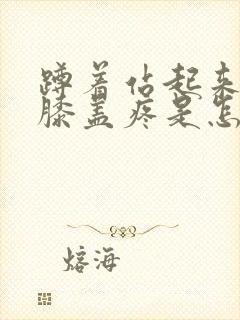 蹲着站起来
膝盖疼是怎
熔海